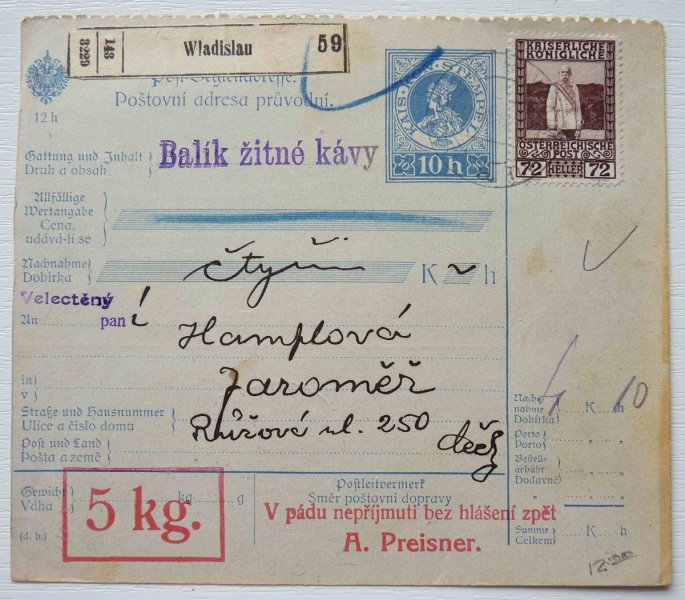 3229 143 Wladislau 59
Poštovní adresa průvodní.
12 h
KAIS. KÖN. STEMPEL
10 h
KAISERLICHE
KÖNIGLICHE
ÖSTERREICHISCHE
POST
72 HELLER 72
Gattung und Inhalt
Druh a obsah
Balík žitné kávy
Allfällige
Wertangabe
Cena,
udává-li se
Nachnahme
Dobírka
čtyři K h
Velectěný
An pan í
Hamplová
in
v
Jaroměř
Straße und Hausnummer
Ulice a číslo domu
Růžová ul. 250
Post und Land
Pošta a země
Čechy
10
Nach-
nahme
Dobírka
K h
Porto
Porto
Bestell-
gebühr
Dodavné
Summe
Celkem
K h
Gewicht
Váha
kg g
5 kg.
(d. b.)
Postleitvermerk
Směr poštovní dopravy
V pádu nepříjmuti bez hlášení zpět
A. Preisner.